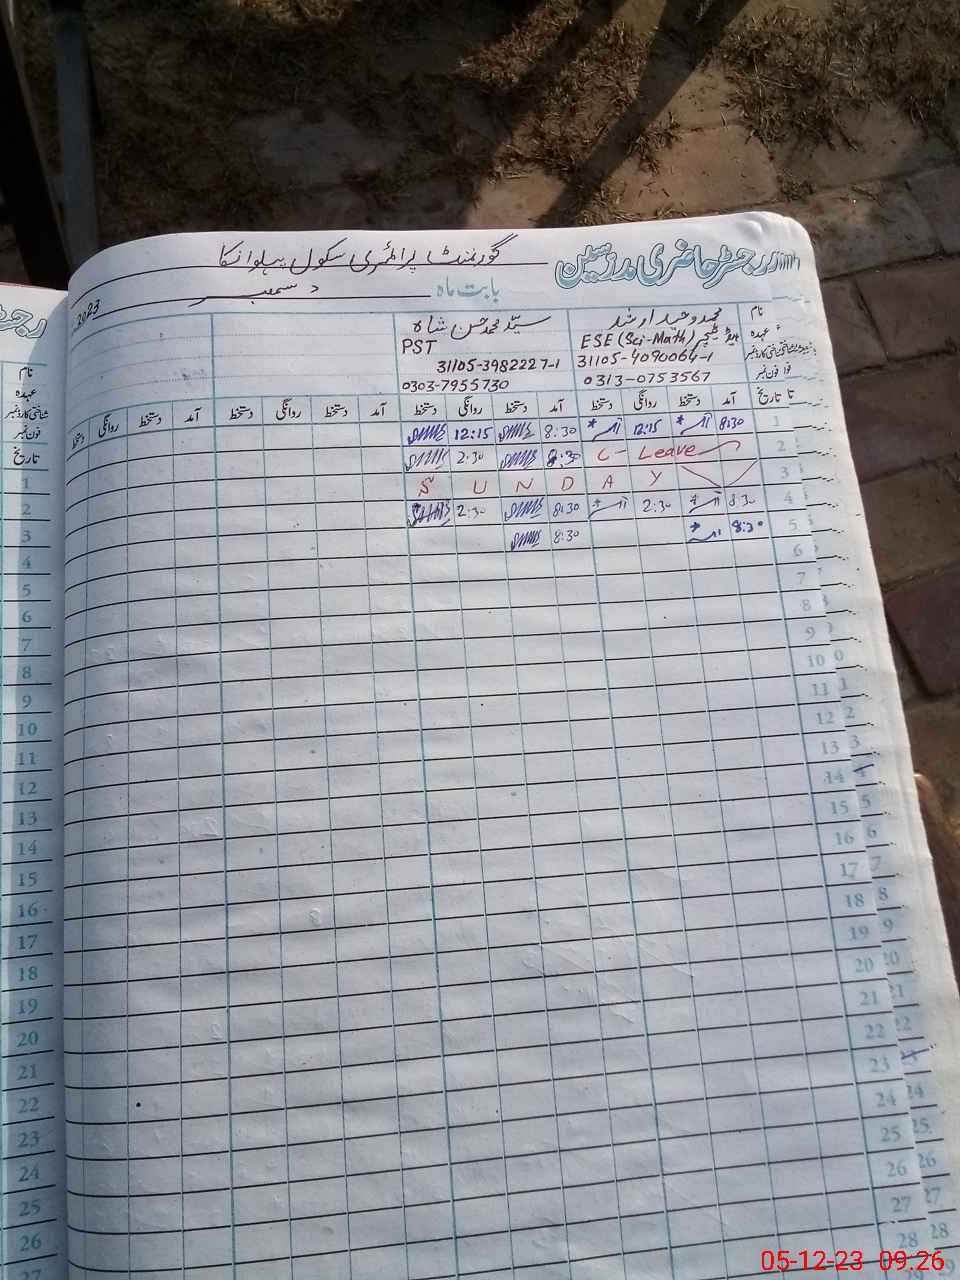 رجسٹر حاضری مدرسین گورنمنٹ پرائمری سکول پہلوانکا
بابت ماہ دسمبر 2023
نام محمد وحید ارشد سید محمد حسن شاہ
عہدہ ہیڈ ٹیچر ESE (Sci-Math) PST
31105-4090064-1 31105-3982227-1
فون نمبر 0313-0753567 0303-7955730
تاریخ آمد دستخط روانگی دستخط آمد دستخط روانگی دستخط آمد دستخط روانگی دستخط آمد دستخط روانگی دستخط
1 8:30 12:15 8:30 12:15
2 C- Leave 8:30 2:30
3 S U N D A Y
4 8:30 2:30 8:30 2:30
5 8:30 8:30
6
7
8
9
10
11
12
13
14
15
16
17
18
19
20
21
22
23
24
25
26
27
28
نام
عہدہ
شناختی کارڈ نمبر
فون نمبر
تاریخ
1
2
3
4
5
6
7
8
9
10
11
12
13
14
15
16
17
18
19
20
21
22
23
24
25
26
27
05-12-23 09:26